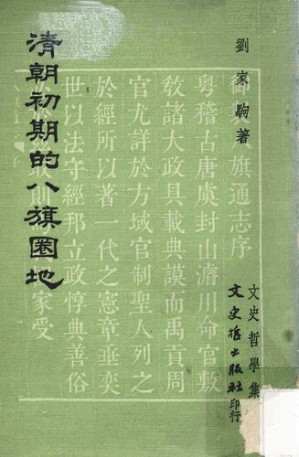 劉家駒著
清朝初期的八旗圈地
文史哲學集
文史哲出版社印行
旗通志序
粵稽古唐虞封山濬川命官敷
教諸大政具載典謨而禹貢周
官尤詳於方域官制聖人列之
於經所以著一代之憲章垂奕
世以法守經邦立政惇典善俗
家受